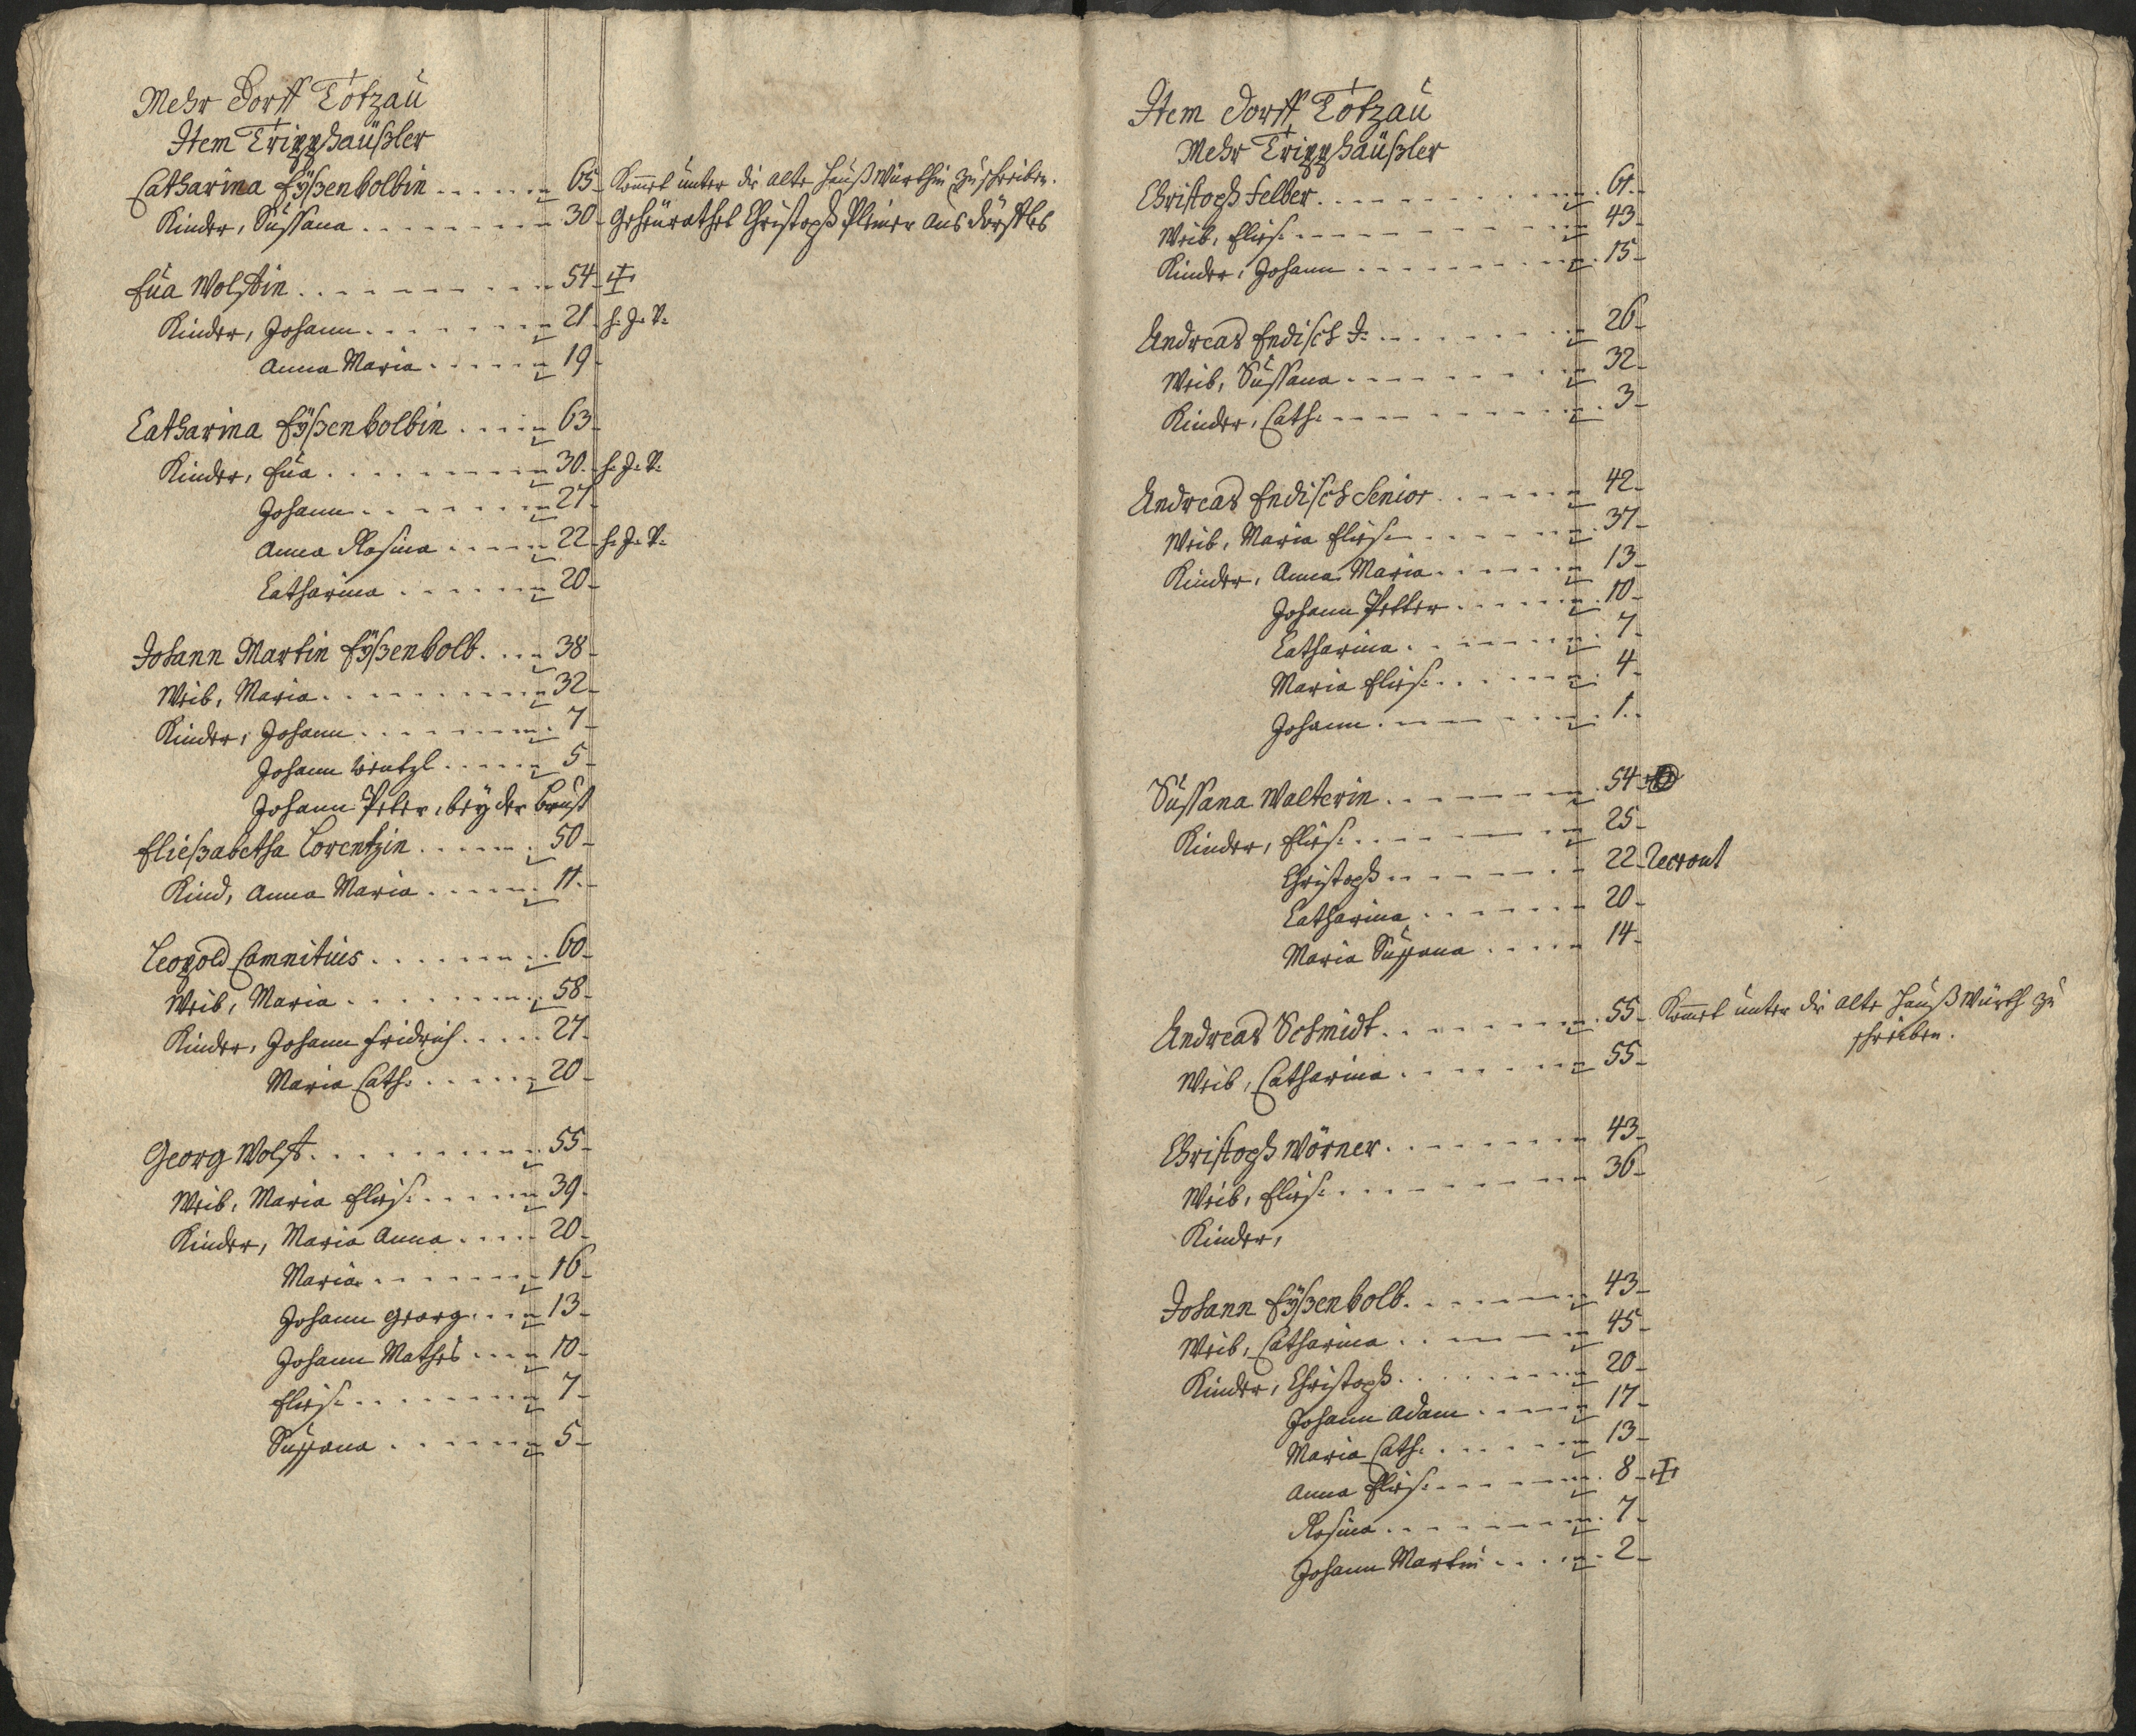 Mehr Dorff Totzau
Item Tripphäußler
Catharina Eÿßenkolbin 65 Kommet unter die alte Haußwürthin zuschreiben.
Kinder, Sussana 30 Geheürathet Christoph Pleiner aus Dörfles
Eua Wolffin 54
Kinder, Johann 21 h. J. V.
Anna Maria 19
Catharina Eÿßenkolbin 63
Kinder, Eua 30 h. J. V.
Johann 27
Anna Rosina 22 h. J. V.
Catharina 20
Johann Martin Eÿßenkolb 38
Weib, Maria 32
Kinder, Johann 7
Johann Wentzl 5
Johann Peter, beÿ der Brust
Eließabetha Lorentzin 50
Kind, Anna Maria 11
Leopold Comnitius 60
Weib, Maria 58
Kinder, Johann Fridrich 27
Maria Cath: 20
Georg Wolff 55
Weib, Maria Elies: 39
Kinder, Maria Anna 20
Maria 16
Johann Georg 13
Johann Mathes 10
Elies: 7
Sussana 5
Item Dorff Totzau
Mehr Tripphäußler
Christoph Felber 61
Weib, Elies: 43
Kinder, Johann 15
Andreas Endisch J: 26
Weib, Sussana 32
Kinder, Cath: 3
Andreas Endisch Senior 42
Weib, Maria Elies: 37
Kinder, Anna Maria 13
Johann Petter 10
Catharina 7
Maria Elies: 4
Johann 1
Sussana Walterin 54
Kinder, Elies: 25
Christoph 22 Recrout
Catharina 20
Maria Sussana 14
Andreas Schmidt 55 Kommet unter die alte Haußwürth zu
schreiben.
Weib, Catharina 55
Christoph Wörner 43
Weib, Elies: 36
Kinder,
Johann Eÿßenkolb 43
Weib, Catharina 45
Kinder, Christoph 20
Johann Adam 17
Maria Cath: 13
Anna Elies: 8
Rosina 7
Johann Martin 2